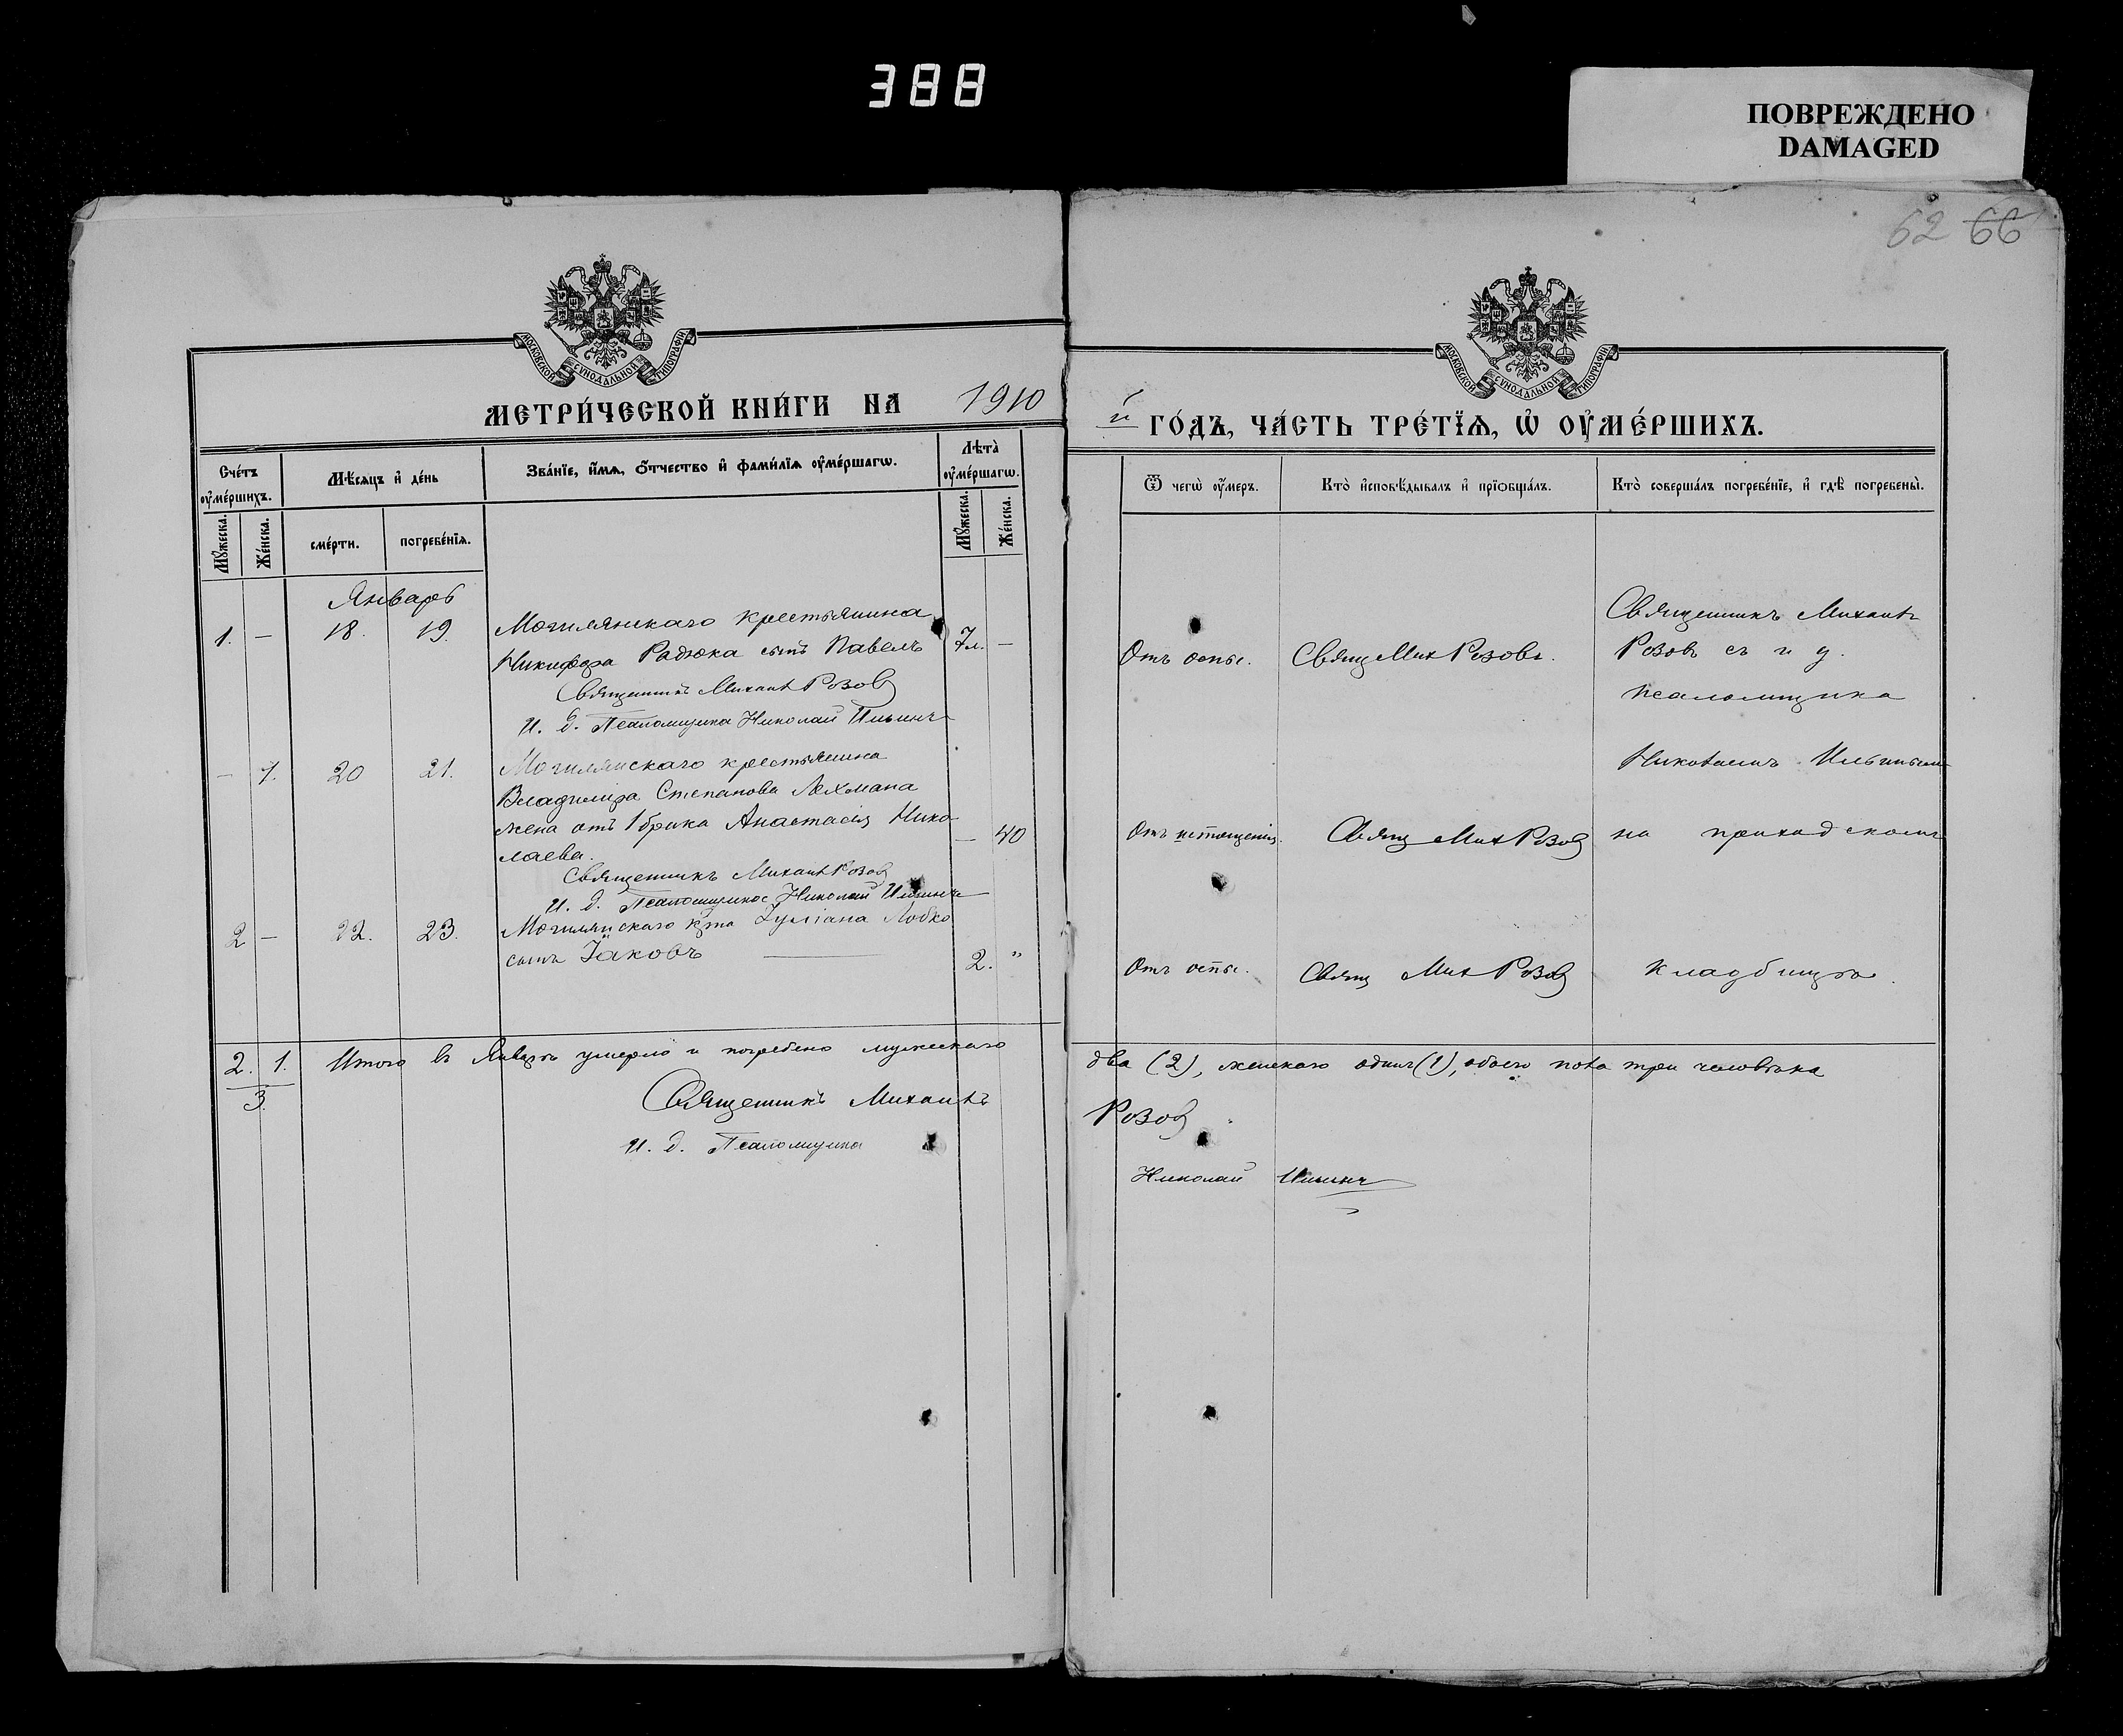 388
ПОВРЕЖДЕНО
DAMAGED
62 66
МОСКОВСКОЙ СУНОДАЛЬНОЙ ТИПОГРАФІИ
МОСКОВСКОЙ СУНОДАЛЬНОЙ ТИПОГРАФІИ
МЕТРИ́ЧЕСКОЙ КНИ́ГИ НА 1910
й ГО́ДЪ, ЧА́СТЬ ТРЕ́ТЇѦ, Ѡ҆ ОУ҆МЕ́РШИХЪ.
Сче́тъ оу҆ме́ршихъ.
Мѣ́сѧцъ и҆ де́нь
Зва́нїе, и҆́мѧ, ѻ҆́тчество и҆ фами́лїѧ оу҆ме́ршагѡ.
Лѣта̀ оу҆ме́ршагѡ.
Ѿ чегѡ̀ оу҆́меръ.
Кто̀ и҆сповѣ́дывалъ и҆ прїѡбща́лъ.
Кто̀ соверша́лъ погребе́нїе, и҆ гдѣ̀ погребены̀.
Мꙋ́жеска.
Же́нска.
сме́рти.
погребе́нїѧ.
Мꙋ́жеска.
Же́нска.
Январь
1. — 18. 19. Могилянскаго крестьянина
Никифора Радзюка сынъ Павелъ 7л. —
Священникъ Михаилъ Розовъ
И. д. Псаломщика Николай Ильинъ
Отъ оспы. Свящ Мих Розовъ.
Священникъ Михаилъ
Розовъ съ и д.
псаломщика
— 1. 20 21. Могилянскаго крестьянина
Владимира Степанова Лахмана
жена отъ 1 брака Анастасія Нико-
лаева. — 40
Священникъ Михаилъ Розовъ
И. д. Псаломщика Николай Ильинъ
Отъ истощенія. Свящ Мих Розовъ
Николаемъ Ильинымъ
на приходскомъ
2 — 22. 23. Могилянскаго кр-на Іуліана Лобко
сынъ Іаковъ 2. "
Отъ оспы. Свящ Мих Розовъ
кладбищѣ.
2. 1. Итого въ Январѣ умерло и погребено мужескаго
3.
два (2), женскаго одинъ (1), обоего пола три человѣка
Священникъ Михаилъ
Розовъ
И. д. Псаломщика
Николай Ильинъ